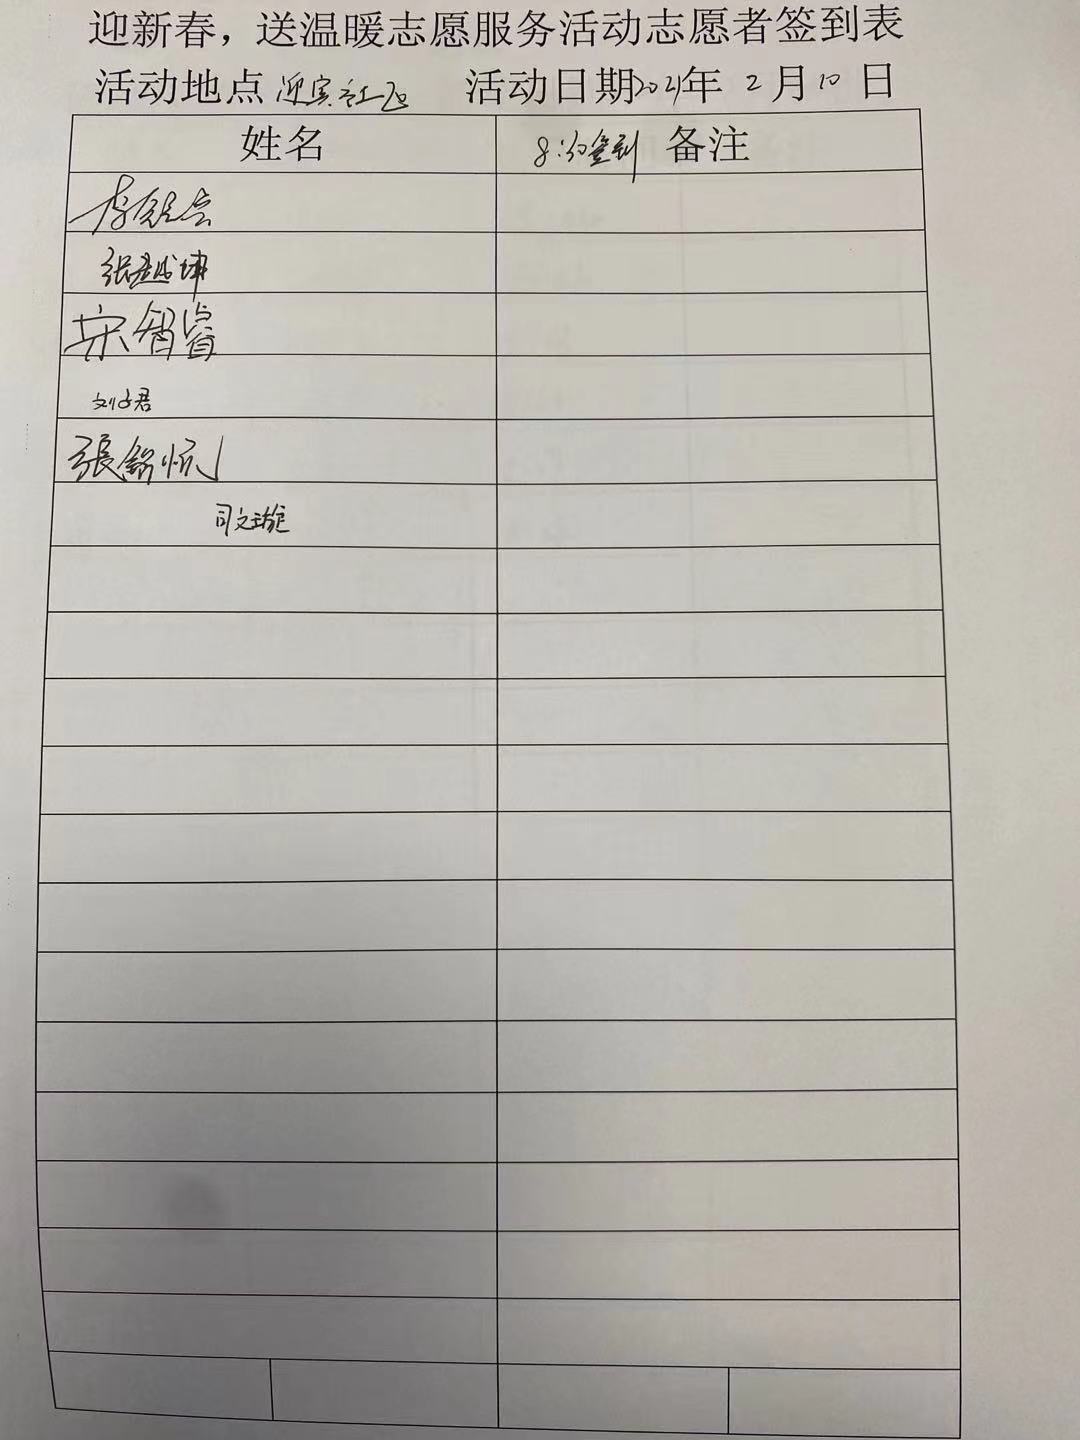 迎新春，送温暖志愿服务活动志愿者签到表
活动地点 迎宾社区 活动日期2021年 2 月 10 日
姓名 8:30签到 备注
张赵越坤
宋智睿
刘子君
張銘悦
司文璇